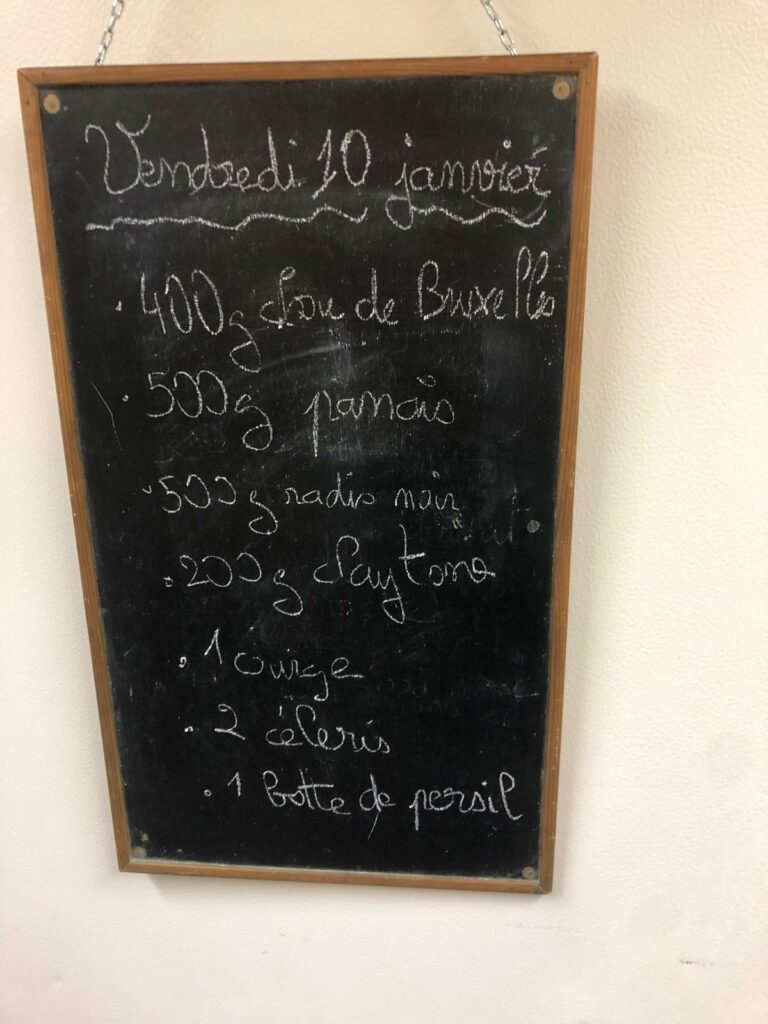 Vendredi 10 janvier
400g Chou de Bruxelles
500g panais
500g radis noir
200g Claytone
1 courge
2 céleris
1 botte de persil